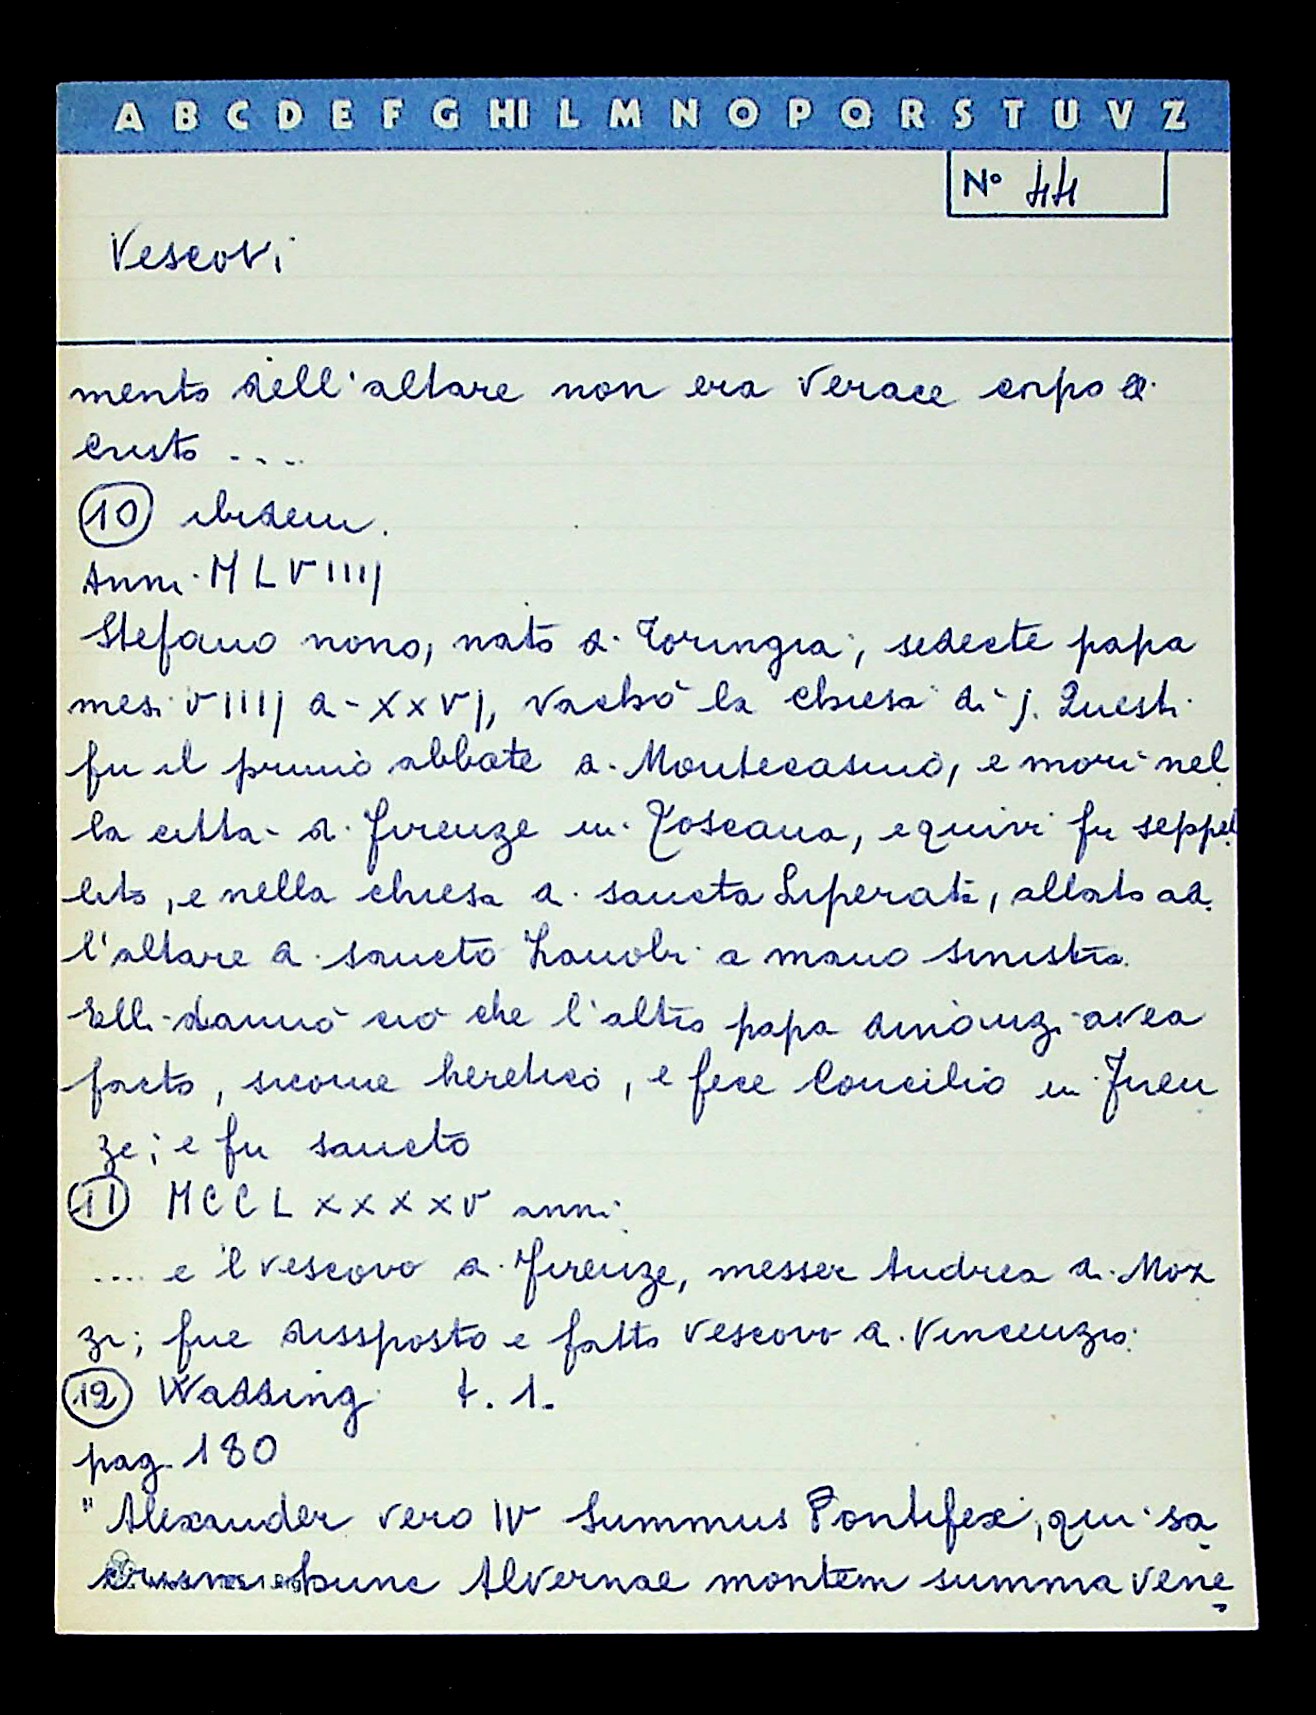 A B C D E F G HI L M N O P Q R S T U V Z
N° 44
Vescovi
mento dell'altare non era verace corpo di
Cristo ....
(10) ibidem.
Anni MLVIIIJ
Stefano nono, nato di Toringia, sedecte papa
mesi VIIIJ dì XXVJ, vachò la chiesa dì j. Questi
fu il primo abbate di Montecasino, e morì nel
la città di Firenze in Toscana, e quivi fu seppel
lito, e nella chiesa di sancta Liperata, allato al
l'altare di sancto Zanobi a mano sinistra.
Elli dannò ciò che l'altro papa dinanzi avea
facto, sicome heretico, e fece Concilio in Firen
ze; e fu sancto
(11) MCCLXXXXV anni
.... e 'l vescovo di Firenze, messer Andrea di Moz
zi; fue dissposto e fatto vescovo di Vincenzio.
(12) Wadding t. 1.
pag. 180
" Alexander vero IV Summus Pontifex, qui sa
crum hunc Alvernae montem summa vene